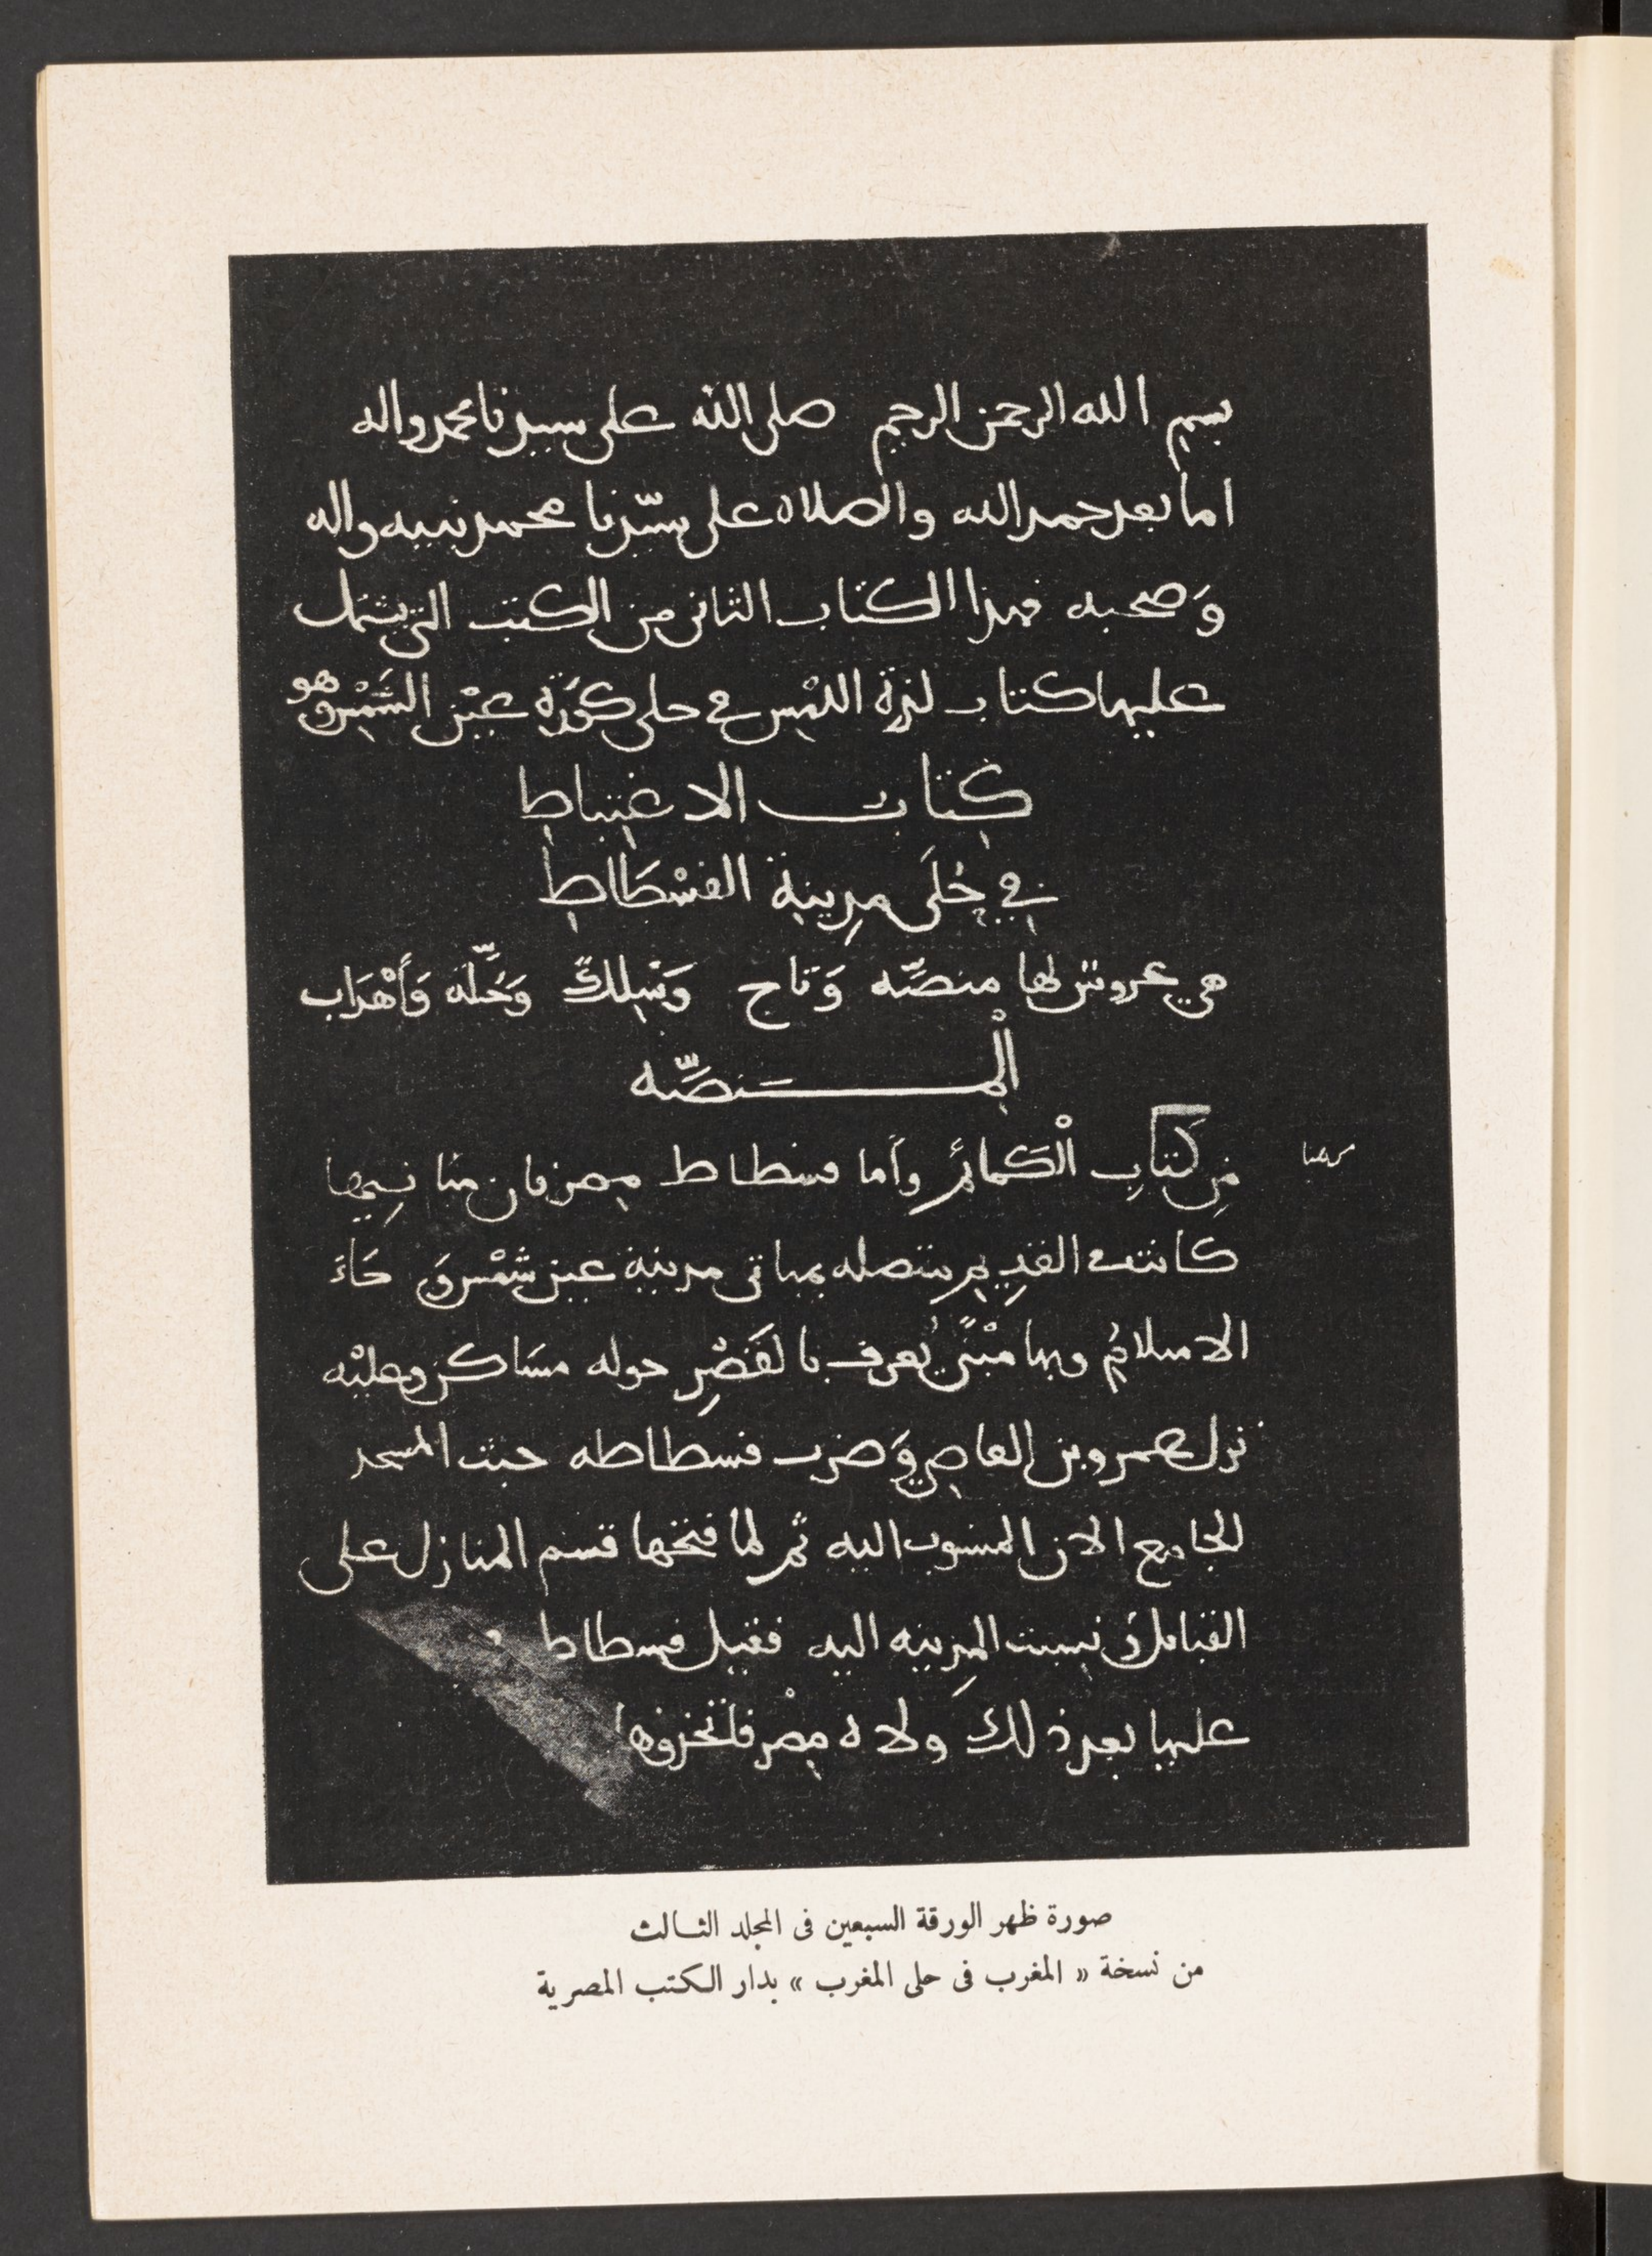 بسم الله الرحمن الرحيم صلى الله على سيدنا محمد واله
اما بعد حمد الله والصلاة على سيّدنا محمد نبيه واله
وَصحبه فهذا الكتاب الثانى من الكتب التى يشتمل
عليها كتاب لذة اللمْس في حلى كُورَة عيْن الشَمْس وهو
كتاب الاغتباط
في حُلَى مدِينة الفسْطَاط
هي عروس لها منصَّه وَتاج وَسِلك وَحُلَّه وَأَهْدَاب
الْمنَصَّه
مِن كتَابِ الْكَمائم وأَما فسطاط مصر فان مبانيها
كانت في القدِيم متصله بمبانى مدينة عين شمْس وَجَاءَ
الاسلامُ وبها مبْنًى يُعرف بالقَصْرِ حوله مسَاكن وعليْه
نزل عمرو بن العاصي وَضرب فسطاطه حيث المسجد
الجامع الان المنسوب اليه ثم لما فتحها قسم المنازل على
القبائل ونسبت المدِينه اليه فقيل فسطاط
عليها بعد ذلك ولاه مصْر فاتخذوها
صورة ظهر الورقة السبعين فى المجلد الثالث
من نسخة « المغرب فى حلى المغرب » بدار الكتب المصرية